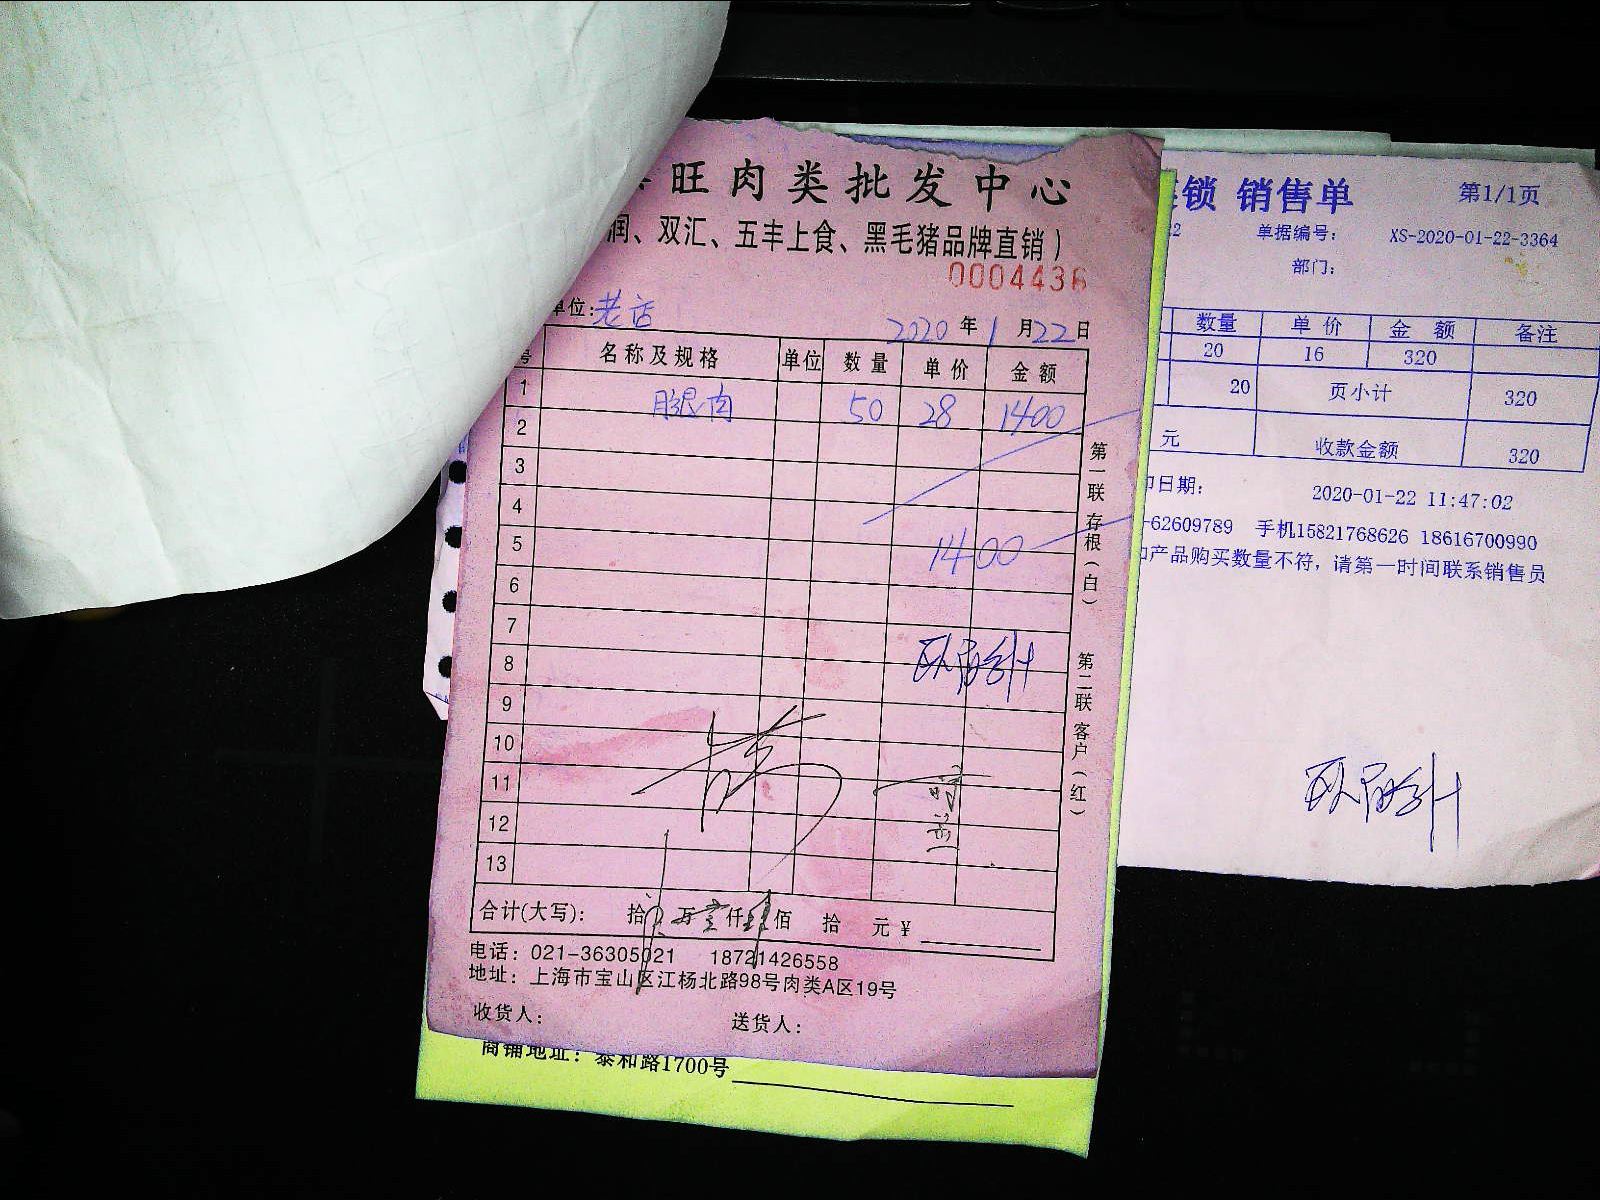 旺肉类批发中心
润、双汇、五丰上食、黑毛猪品牌直销）
0004436
单位：
2020 年 1 月 22 日
号 名称及规格 单位 数量 单价 金额
1 腿肉 50 28 1400
2
3
4
5 1400
6
7
8
9
10
11
12
13
第一联 存根（白）
第二联 客户（红）
合计(大写)： 拾 万 仟 佰 拾 元 ¥
电话：021-36305021 18721426558
地址：上海市宝山区江杨北路98号肉类A区19号
收货人： 送货人：
商铺地址：泰和路1700号
锁 销售单 第1/1页
单据编号： XS-2020-01-22-3364
部门：
数量 单价 金额 备注
20 16 320
20 页小计 320
元 收款金额 320
印日期： 2020-01-22 11:47:02
-62609789 手机15821768626 18616700990
产品购买数量不符，请第一时间联系销售员